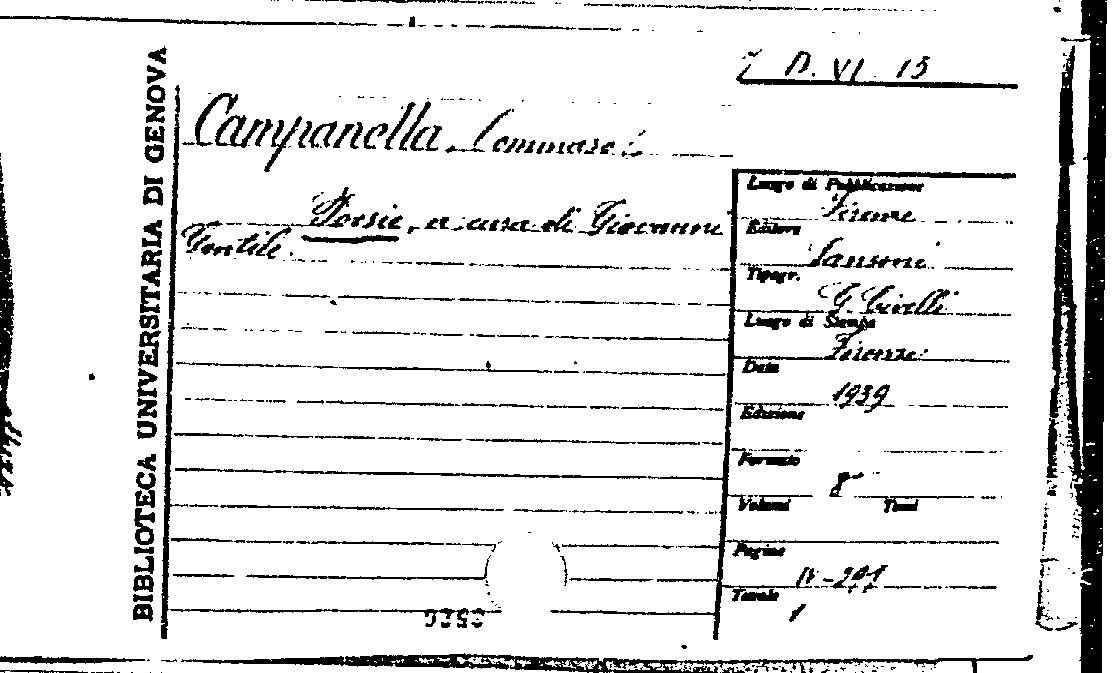 BIBLIOTECA UNIVERSITARIA DI GENOVA
D. VI 15
Campanella, Tommaso
Poesie, a cura di Giovanni
Gentile.
Luogo di Pubblicazione
Firenze
Editore
Sansoni
Tipogr.
G. Civelli
Luogo di Stampa
Firenze
Data
1939
Edizione
Formato
8°
Volumi Tomi
Pagine
Tavole
1